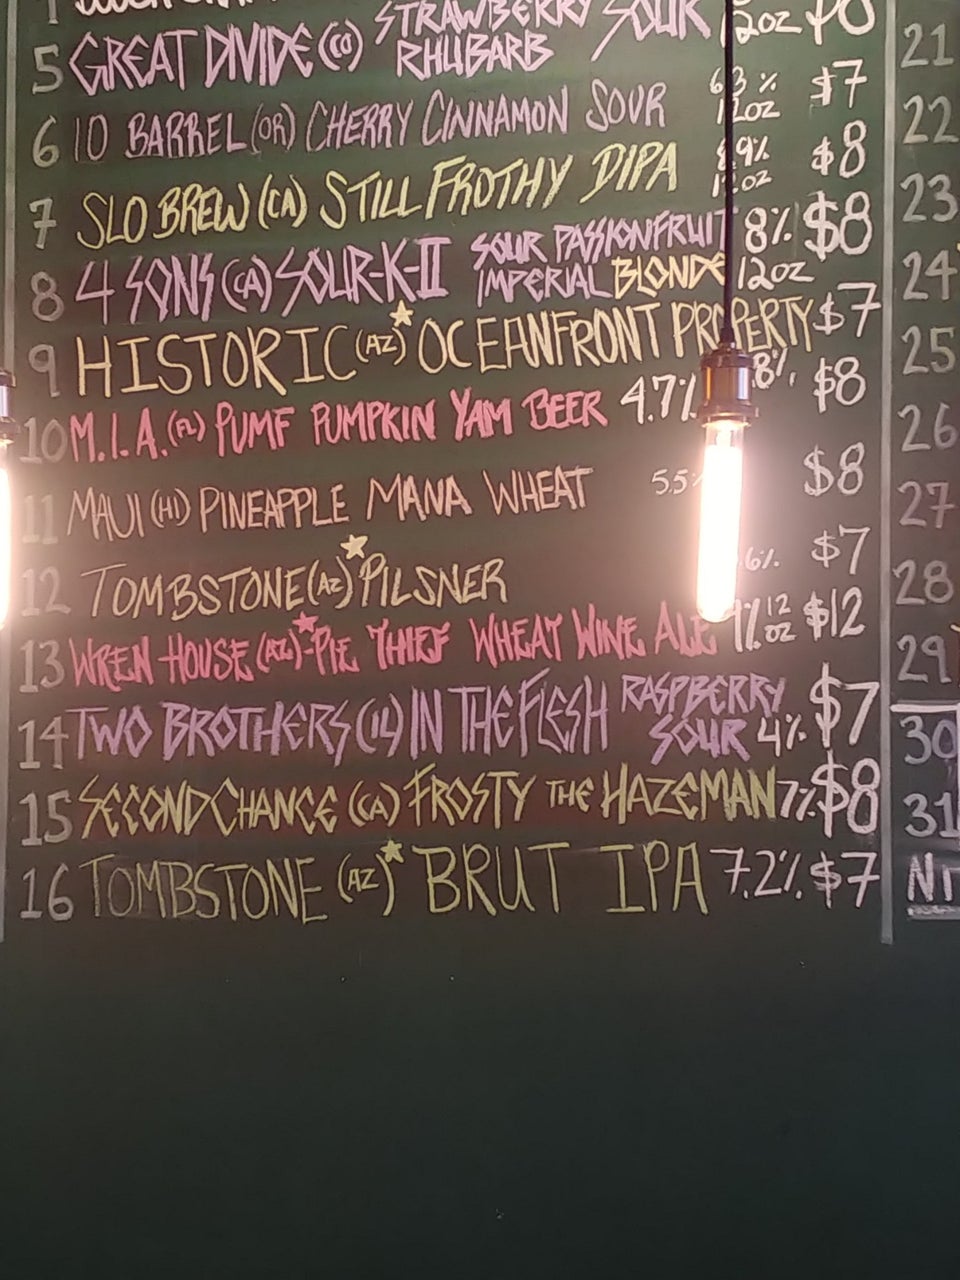 STRAWBERRY SOUR 12OZ
5 GREAT DIVIDE (CO) RHUBARB
6 10 BARREL (OR) CHERRY CINNAMON SOUR 12OZ $7
7 SLO BREW (CA) STILL FROTHY DIPA $8
8 4 SONS (CA) SOUR-K-II SOUR PASSIONFRUIT 8% $8
IMPERIAL BLONDE 12OZ
9 HISTORIC (AZ) OCEANFRONT PROPERTY $7
10 M.I.A. (FL) PUMF PUMPKIN YAM BEER 4.7% $8
11 MAUI (HI) PINEAPPLE MANA WHEAT 5.5 $8
12 TOMBSTONE (AZ) PILSNER $7
13 WREN HOUSE (AZ) PIE THIEF WHEAT WINE ALE 12 OZ $12
14 TWO BROTHERS (IL) IN THE FLESH RASPBERRY SOUR 4% $7
15 SECOND CHANCE (CA) FROSTY THE HAZEMAN 7% $8
16 TOMBSTONE (AZ) BRUT IPA 7.2% $7
21
22
23
24
25
26
27
28
29
30
31